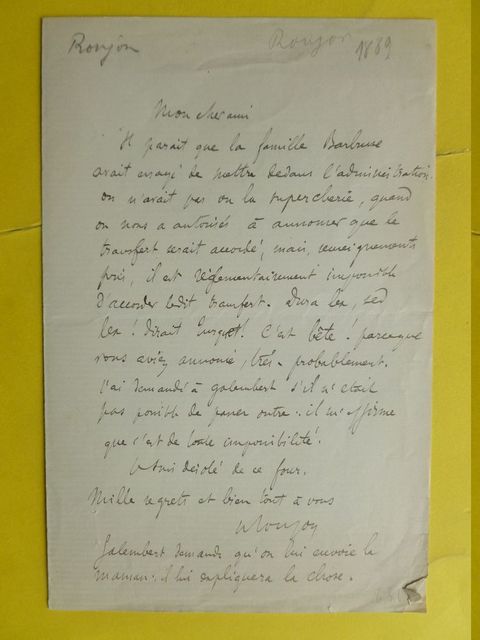 Roujon
Roujon 1889
Mon cher ami
Il parait que la famille Barbuse
avait essayé de mettre dedans l'administration.
on n'avait pas vu la supercherie, quand
on nous a autorisés à annoncer que le
transfert serait accordé, mais, renseignements
pris, il est réglementairement impossible
d'accorder ledit transfert. Dura lex, sed
lex ! dirait C'est bête ! parceque
vous aviez annoncé, très probablement.
J'ai demandé à galembert s'il n'était
pas possible de passer outre : il m'affirme
que c'est de toute impossibilité.
Je suis désolé de ce four.
Mille regrets et bien tout à vous
Roujon
Galembert demande qu'on lui envoie la
maman : il lui expliquera la chose.